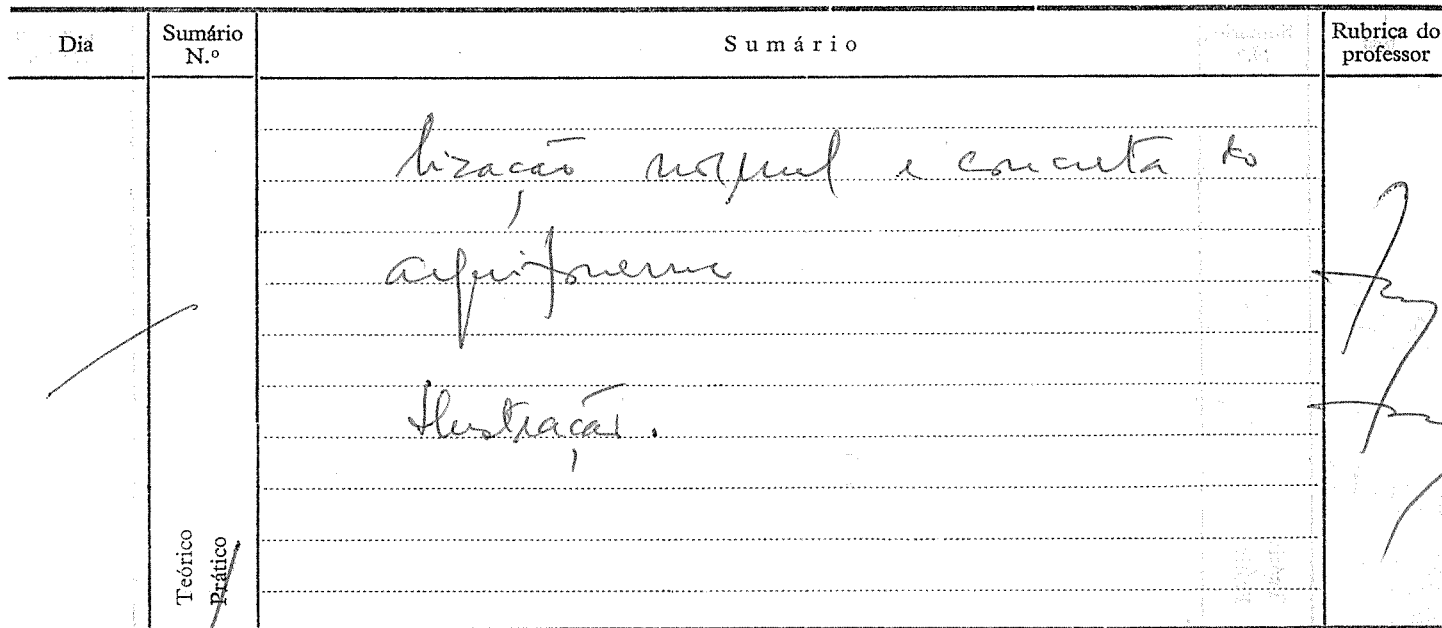 Dia
Sumário N.º
Sumário
Rubrica do professor
lização normal e concreta do
arquifonema
Ilustração.
Teórico
Prático